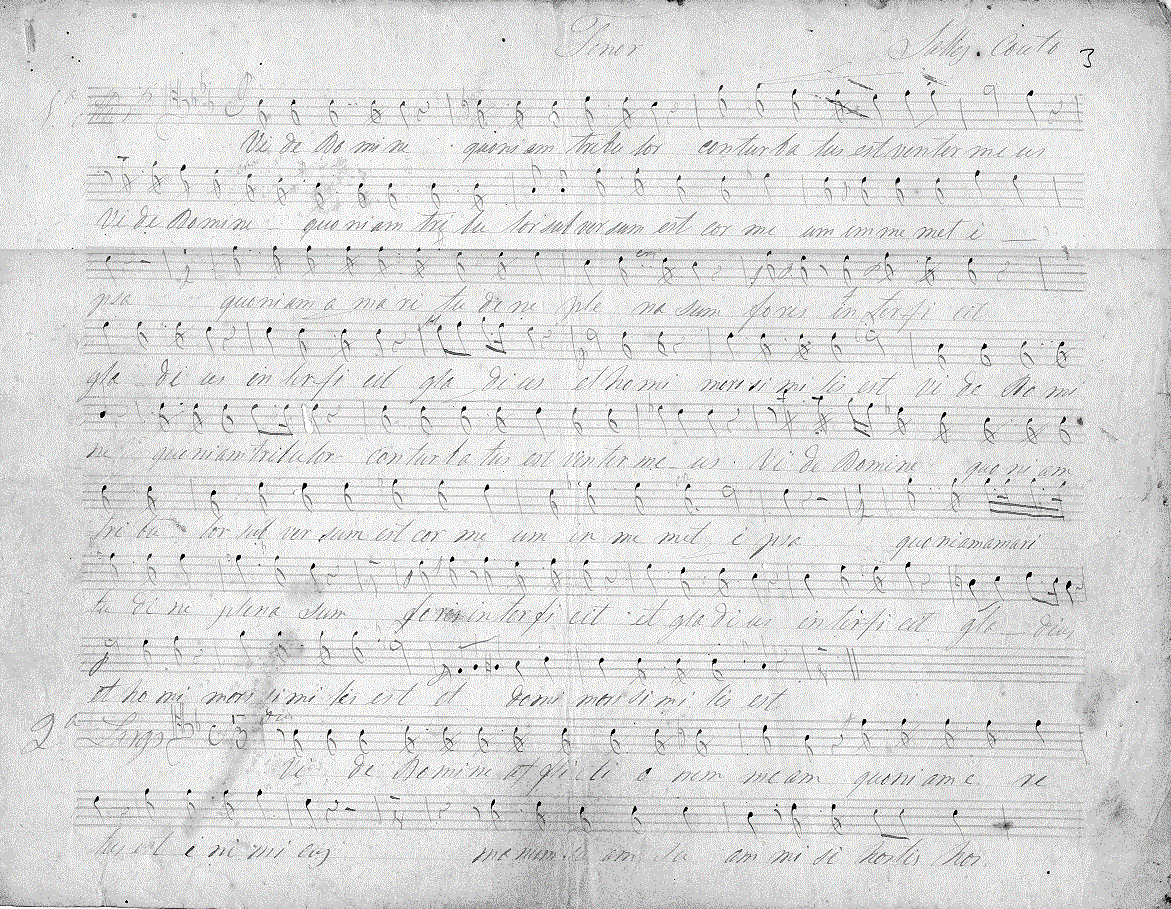 Tenor Salles. Couto 3
1ª
Vi de Do mi ne quoniam tribu lor conturba tus est venter me us
Vi de Domine quo niam tri bu lor sub ver sum est cor me um in me met i
psa quoniam a ma ri tu di ne ple na sum foris in ter fi cit
gla di us in ter fi cit gla di us et ho mi mors si mi lis est Vi de Do mi
ne quoniam tribulor conturba tus est venter me us. Vi de Domine quo niam
tri bu lor sub ver sum est cor me um in me met i psa quoniam amari
tu di ne plena sum foris interfi cit et gla di us in terfi cit gla dius
et ho mi mors si mi lis est et domi mors si mi lis est
2ª Largo C 3
Vi de Domine af fli cti o nem me am quoniam e re
ctus est i ni mi cus manum su am su am mi si hostis hos